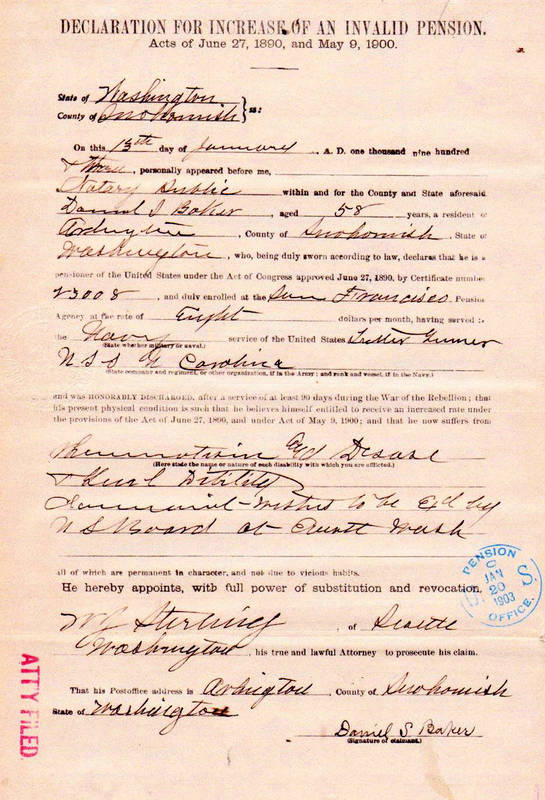 DECLARATION FOR INCREASE OF AN INVALID PENSION.
Acts of June 27, 1890, and May 9, 1900.
State of Washington
County of Snohomish } ss:
On this 13th day of January, A. D. one thousand nine hundred
& three, personally appeared before me,
Notary Public within and for the County and State aforesaid
Daniel S Baker, aged 58 years, a resident of
Arlington, County of Snohomish, State of
Washington, who, being duly sworn according to law, declares that he is a
pensioner of the United States under the Act of Congress approved June 27, 1890, by Certificate number
23008, and duly enrolled at the San Francisco Pension
Agency at the rate of Eight dollars per month, having served in
the Navy service of the United States
(State whether military or naval.)
USS N Carolina
(State company and regiment, or other organization, if in the Army; and rank and vessel, if in the Navy.)
and was HONORABLY DISCHARGED, after a service of at least 90 days during the War of the Rebellion; that
his present physical condition is such that he believes himself entitled to receive an increased rate under
the provisions of the Act of June 27, 1890, and under Act of May 9, 1900; and that he now suffers from
Rheumatism Disease
(Here state the name or nature of such disability with which you are afflicted.)
& Genl Debility
Claimant wishes to be Exd by
US Board at Everett Wash
all of which are permanent in character, and not due to vicious habits.
He hereby appoints, with full power of substitution and revocation,
Sterling, of Seattle
Washington, his true and lawful Attorney to prosecute his claim.
That his Postoffice address is Arlington, County of Snohomish
State of Washington
Daniel S. Baker
(Signature of claimant.)
PENSION
JAN
20
1903
U. S.
OFFICE.
ATTY FILED.